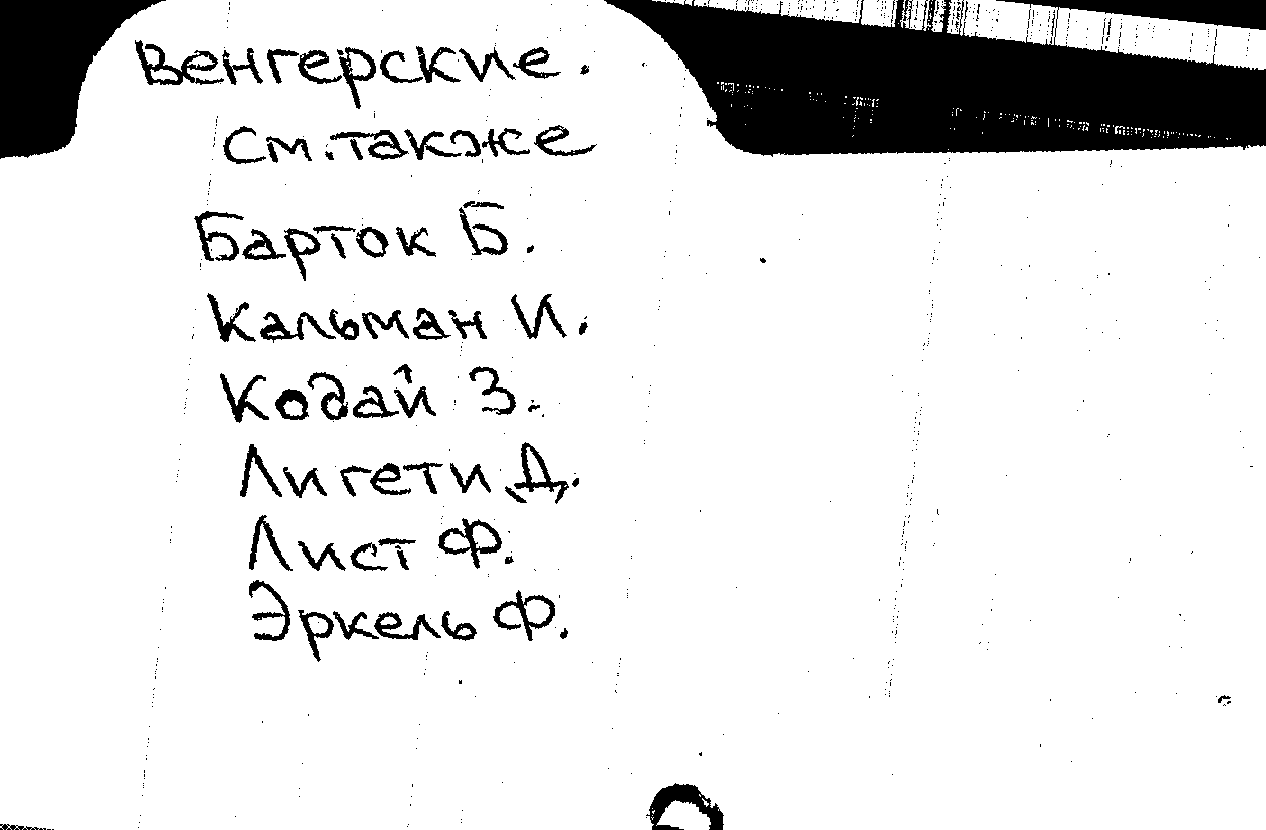 Венгерские.
См. также
Барток Б.
Кальман И.
Кодай З.
Лигети Д.
Лист Ф.
Эркель Ф.